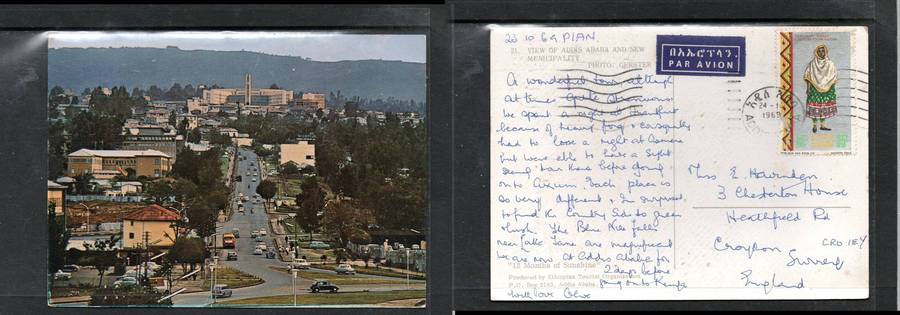 23 10 69 PIAN.
21. VIEW OF ADDIS ABABA AND NEW
MUNICIPALITY
PHOTO: GERSTER
በአየር፡መንገድ
PAR AVION
A wonderful tour although
at times quite strenuous
We spent a night at
because of fog & consequently
had to lose a night at Asmara
but were able to have a sight
seeing tour here before going
on to Axum. Each place is
so very different & I'm surprised
to find the Country Side so green
& lush. The Blue Nile falls
near Lake Tana are magnificent
We are now at Addis Ababa for
2 days before
going on to Kenya
With love Clive
"13 Months of Sunshine"
Produced by Ethiopian Tourist Organization
P.O. Box 2183, Addis Ababa
24
1969
Miss E. Hawnden
3 Chesterton House
Heathfield Rd
Croydon CR0 1EY
Surrey
England